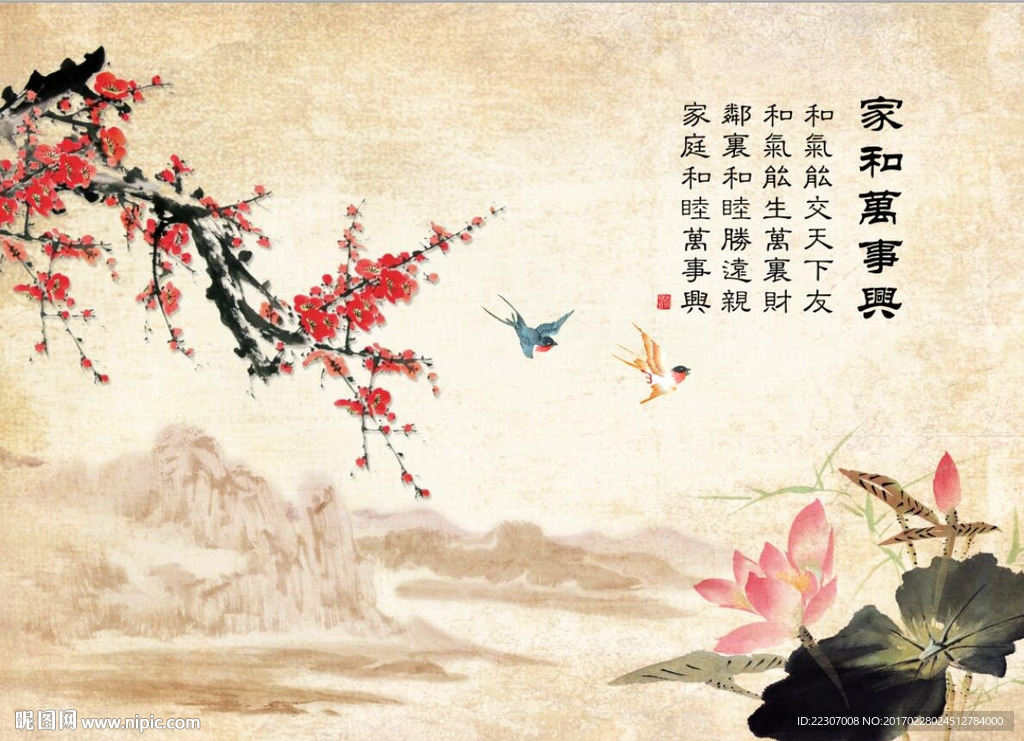 家和萬事興
和氣能交天下友
和氣能生萬裏財
鄰裏和睦勝遠親
家庭和睦萬事興
昵图网 www.nipic.com
ID:22307008 NO:20170228024512784000